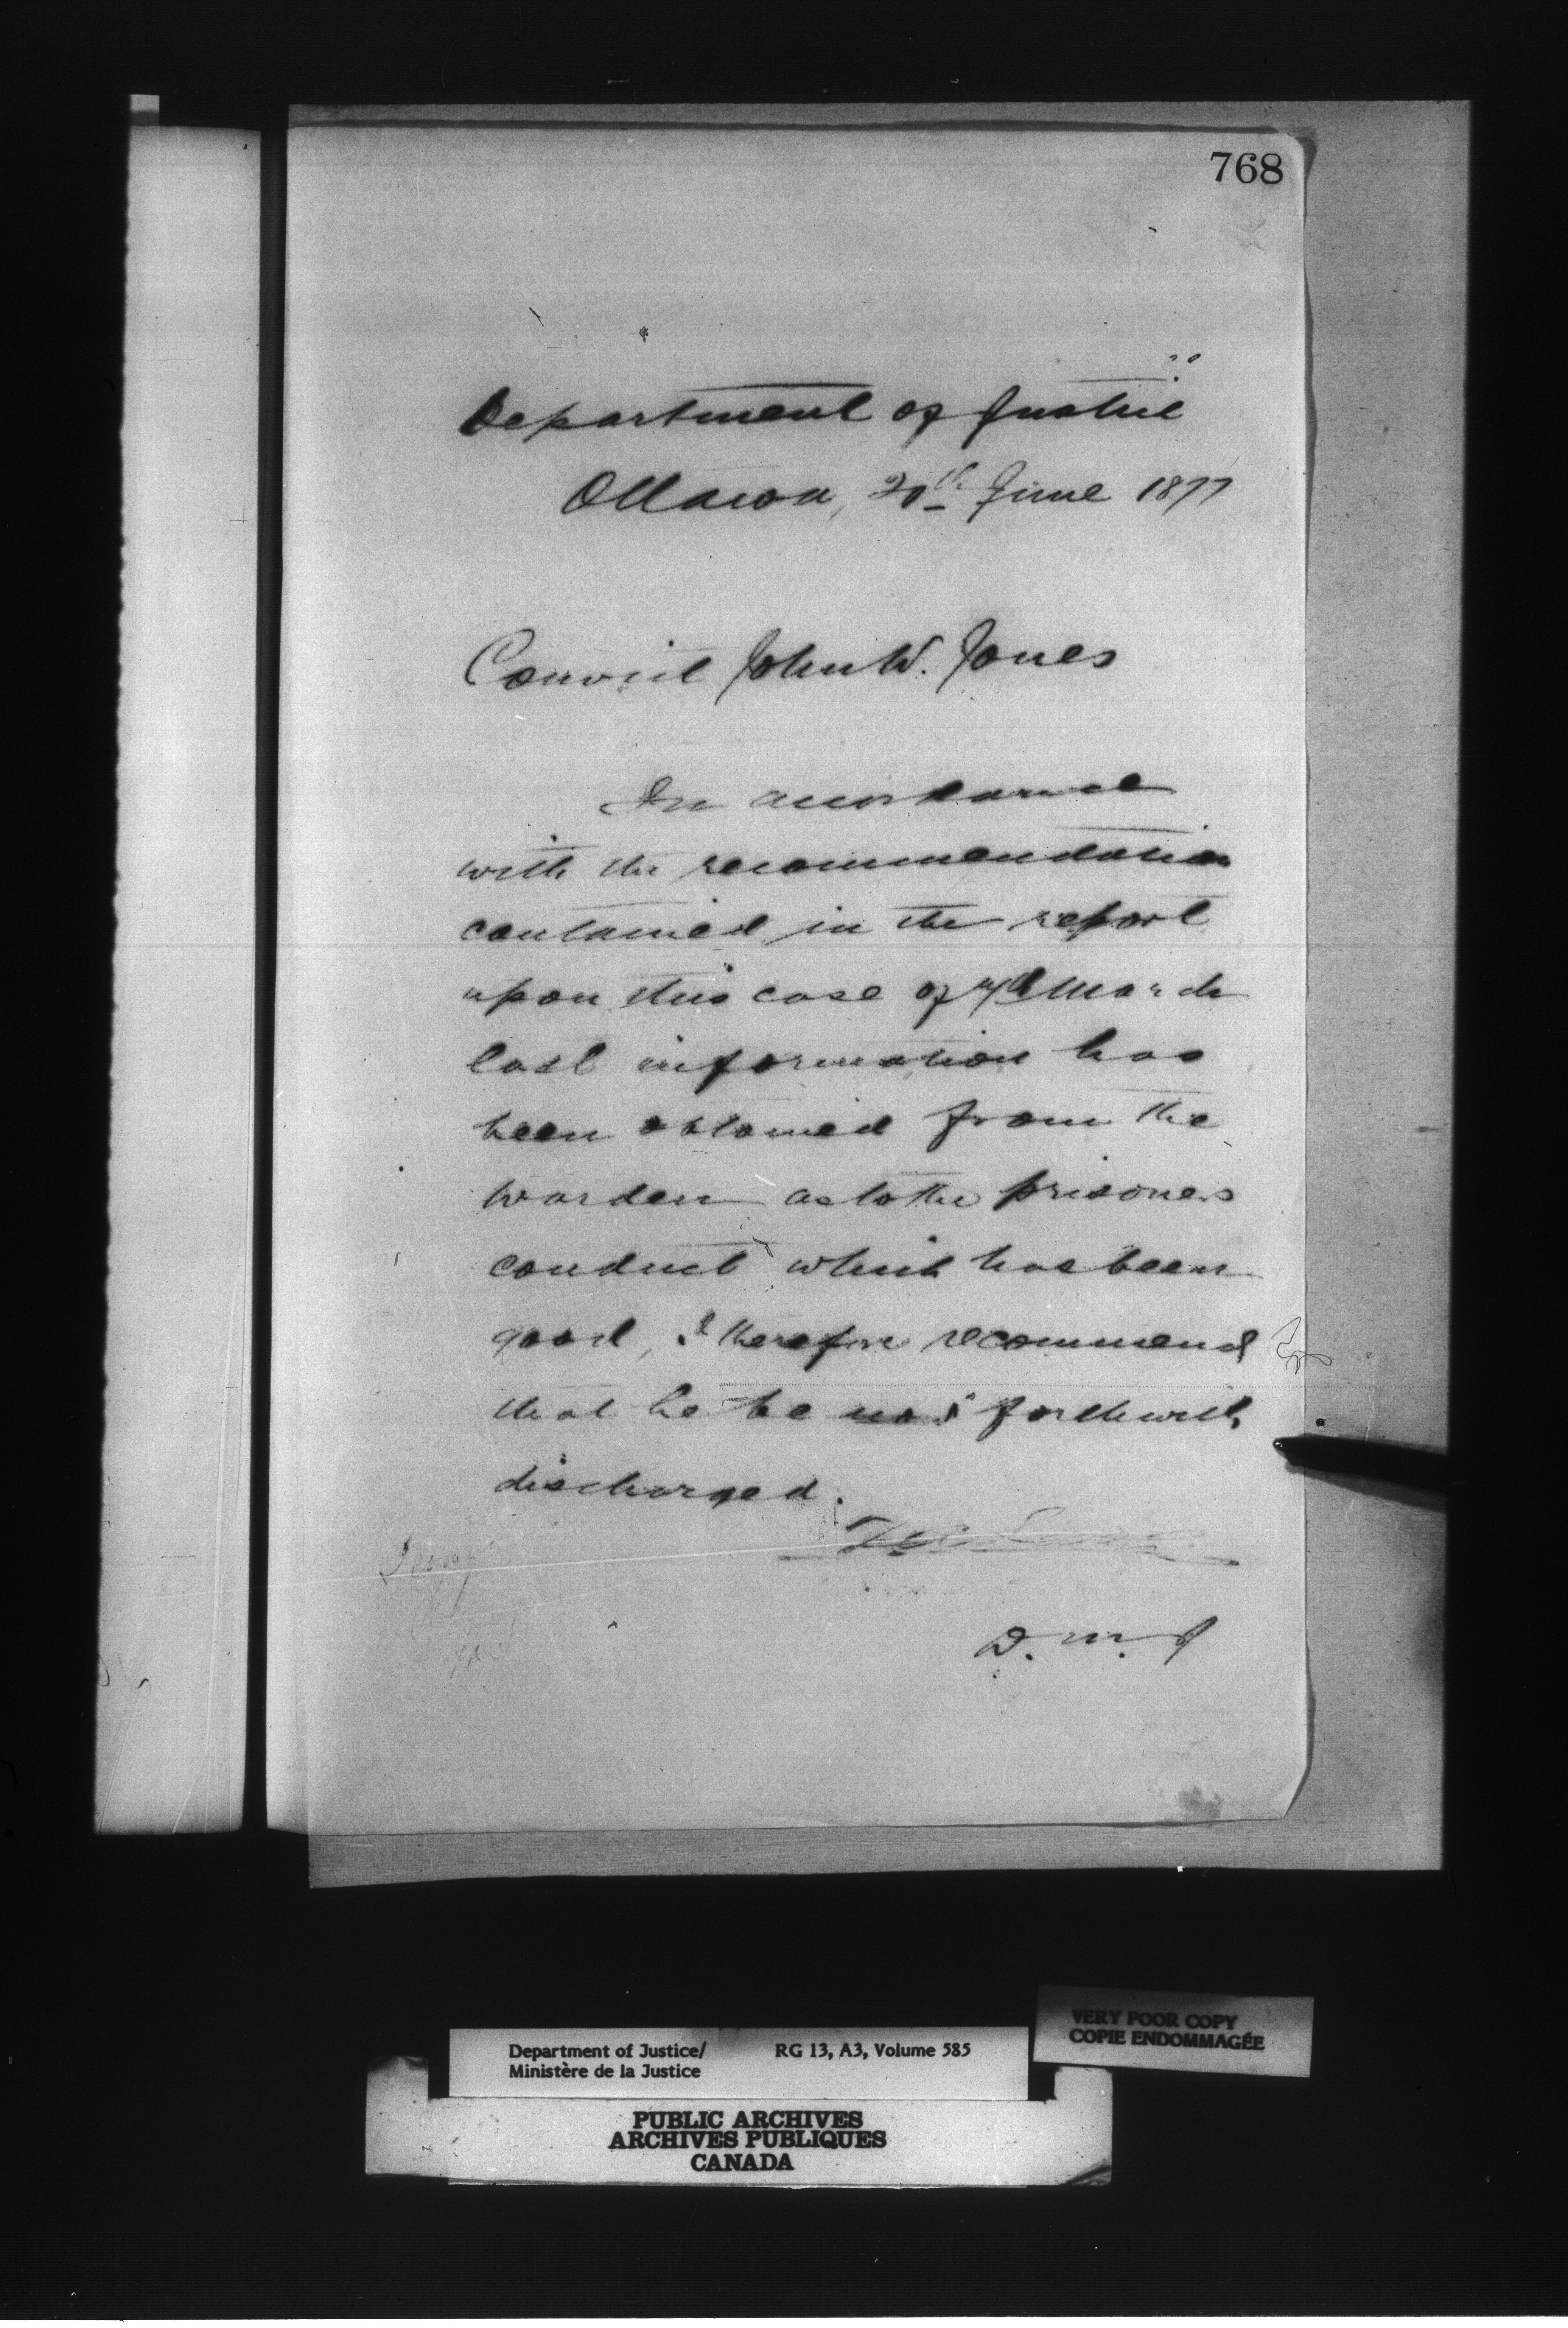 768
Department of Justice
Ottawa, 20th June 1877
Convict John W. Jones
In accordance
with the recommendation
contained in the report
upon this case of 7th March
last information has
been obtained from the
warden as to the prisoners
conduct which has been
good, I therefore recommend
that he be forthwith
discharged.
D. M. J
Department of Justice/
Ministère de la Justice
RG 13, A3, Volume 585
VERY POOR COPY
COPIE ENDOMMAGÉE
PUBLIC ARCHIVES
ARCHIVES PUBLIQUES
CANADA